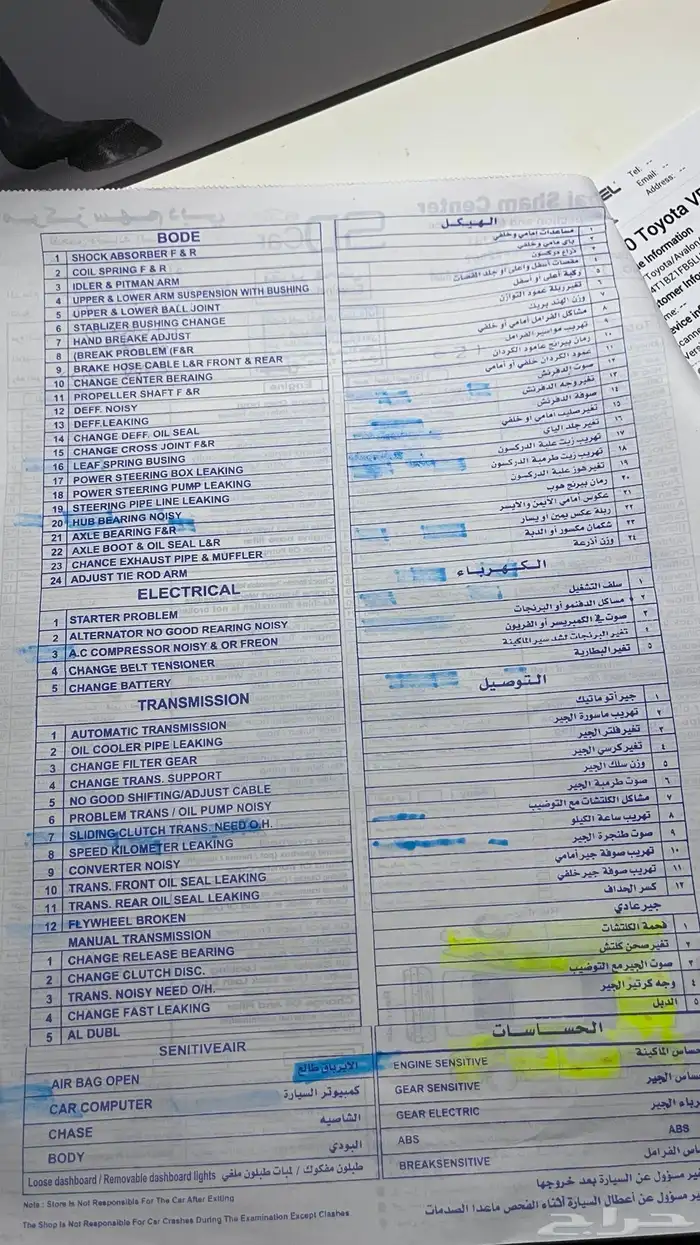 Tel: --
Email: --
Address: --
0 Toyota
Toyota/Avalon
BODE الهيكل
1 SHOCK ABSORBER F & R مساعدات امامي وخلفي ١
2 COIL SPRING F & R ياي مامي وخلفي ٢
3 IDLER & PITMAN ARM ذراع دركسون ٣
4 UPPER & LOWER ARM SUSPENTION WITH BUSHING مقصات أسفل واعلى او جلد المقصات ٤
5 UPPER & LOWER BALL JOINT ركبة أعلى او أسفل ٥
6 STABLIZER BUSHING CHANGE تغير ربلة عمود التوازن ٦
7 HAND BREAKE ADJUST وزن الهند بريك ٧
8 (BREAK PROBLEM (F&R مشاكل الفرامل أمامي أو خلفي ٨
9 BRAKE HOSE CABLE L&R FRONT & REAR تهريب مواسير الفرامل ٩
10 CHANGE CENTER BERAING رمان بيرانج عامود الكردان ١٠
11 PROPELLER SHAFT F &R عمود الكردان خلفي أو أمامي ١١
12 DEFF. NOISY صوت الدفرنش ١٢
13 DEFF.LEAKING تغير وجه الدفرنش ١٣
14 CHANGE DEFF. OIL SEAL صوفة الدفرنش ١٤
15 CHANGE CROSS JOINT F&R تغير صليب امامي او خلفي ١٥
16 LEAF SPRING BUSING تغير جلد الياي ١٦
17 POWER STEERING BOX LEAKING تهريب زيت علبة الدركسون ١٧
18 POWER STEERING PUMP LEAKING تهريب زيت طرمبة الدركسون ١٨
19 STEERING PIPE LINE LEAKING تغير هوز علبة الدركسون ١٩
20 HUB BEARING NOISY رمان بيرنج هوب ٢٠
21 AXLE BEARING F&R عكوس أمامي الأيمن والأيسر ٢١
22 AXLE BOOT & OIL SEAL L&R ربلة عكس يمين او يسار ٢٢
23 CHANCE EXHAUST PIPE & MUFFLER شكمان مكسور أو الدبة ٢٣
24 ADJUST TIE ROD ARM وزن أذرعة ٢٤
ELECTRICAL الكهرباء
1 STARTER PROBLEM سلف التشغيل ١
2 ALTERNATOR NO GOOD REARING NOISY مشاكل الدفنمو أو البرنجات ٢
3 A.C COMPRESSOR NOISY & OR FREON صوت في الكمبريسر أو الفريون ٣
4 CHANGE BELT TENSIONER تغير البرنجات لشد سير الماكينة ٤
5 CHANGE BATTERY تغير البطارية ٥
TRANSMISSION التوصيل
1 AUTOMATIC TRANSMISSION جير أتوماتيك ١
2 OIL COOLER PIPE LEAKING تهريب ماسورة الجير ٢
3 CHANGE FILTER GEAR تغير فلتر الجير ٣
4 CHANGE TRANS. SUPPORT تغير كرسي الجير ٤
5 NO GOOD SHIFTING/ADJUST CABLE وزن سلك الجير ٥
6 PROBLEM TRANS / OIL PUMP NOISY صوت طرمبة الجير ٦
7 SLIDING CLUTCH TRANS. NEED O/H. مشاكل الكلتشات مع التوضيب ٧
8 SPEED KILOMETER LEAKING تهريب ساعة الكيلو ٨
9 CONVERTER NOISY صوت طنجرة الجير ٩
10 TRANS. FRONT OIL SEAL LEAKING تهريب صوفة جير أمامي ١٠
11 TRANS. REAR OIL SEAL LEAKING تهريب صوفة جير خلفي ١١
12 FLYWHEEL BROKEN كسر الحداف ١٢
MANUAL TRANSMISSION جير عادي
1 CHANGE RELEASE BEARING فحمة الكلتشات ١
2 CHANGE CLUTCH DISC. تغير صحن كلتش ٢
3 TRANS. NOISY NEED O/H. صوت الجير مع التوضيب ٣
4 CHANGE FAST LEAKING وجه كرتير الجير ٤
5 AL DUBL الدبل ٥
SENITIVEAIR الحساسات
AIR BAG OPEN الايرباق طالع ENGINE SENSITIVE حساس الماكينة
CAR COMPUTER كمبيوتر السيارة GEAR SENSITIVE الجير
CHASE الشاصيه GEAR ELECTRIC الجير
BODY البودي ABS ABS
Loose dashboard / Removable dashboard lights طبلون مفكوك / لمبات طبلون ملغي BREAKSENSITIVE الفرامل
Note : Store Is Not Responsible For The Car After Exiting مسؤول عن السيارة بعد خروجها
The Shop Is Not Responsible For Car Crashes During The Examination Except Clashes مسؤول عن أعطال السيارة أثناء الفحص ماعدا الصدمات
حراج